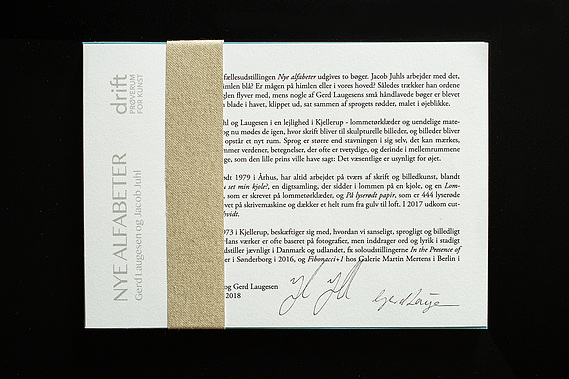 drift
PRØVERUM
FOR KUNST
NYE ALFABETER
Gerd Laugesen og Jacob Juhl
fællesudstillingen Nye alfabeter udgives to bøger. Jacob Juhls arbejder med det,
imlen blå? Er mågen på himlen eller i vores hoved? Således trækker han ordene
glen flyver med, mens nogle af Gerd Laugesens små håndlavede bøger er blevet
blade i havet, klippet ud, sat sammen af sprogets rødder, malet i øjeblikke.
hl og Laugesen i en lejlighed i Kjellerup - lommetørklæder og uendelige mate-
og nu mødes de igen, hvor skrift bliver til skulpturelle billeder, og billeder bliver
opstår et nyt rum. Sprog er større end stavningen i sig selv, det kan mærkes,
mmer verdener, betegnelser, der ofte er tvetydige, og derinde i mellemrummene
ge, som den lille prins ville have sagt: Det væsentlige er usynligt for øjet.
ødt 1979 i Århus, har altid arbejdet på tværs af skrift og billedkunst, blandt
u set min kjole?, en digtsamling, der sidder i lommen på en kjole, og en Lom-
, som er skrevet på lommetørklæder, og På lyserødt papir, som er 444 lyserøde
vet på skrivemaskine og dækker et helt rum fra gulv til loft. I 2017 udkom cut-
hvidt.
973 i Kjellerup, beskæftiger sig med, hvordan vi sanseligt, sprogligt og billedligt
Hans værker er ofte baseret på fotografier, men inddrager ord og lyrik i stadigt
dstiller jævnligt i Danmark og udlandet, fx soloudstillingerne In the Presence of
er i Sønderborg i 2016, og Fibonacci+1 hos Galerie Martin Mertens i Berlin i
og Gerd Laugesen
2018
Gerd Lauge